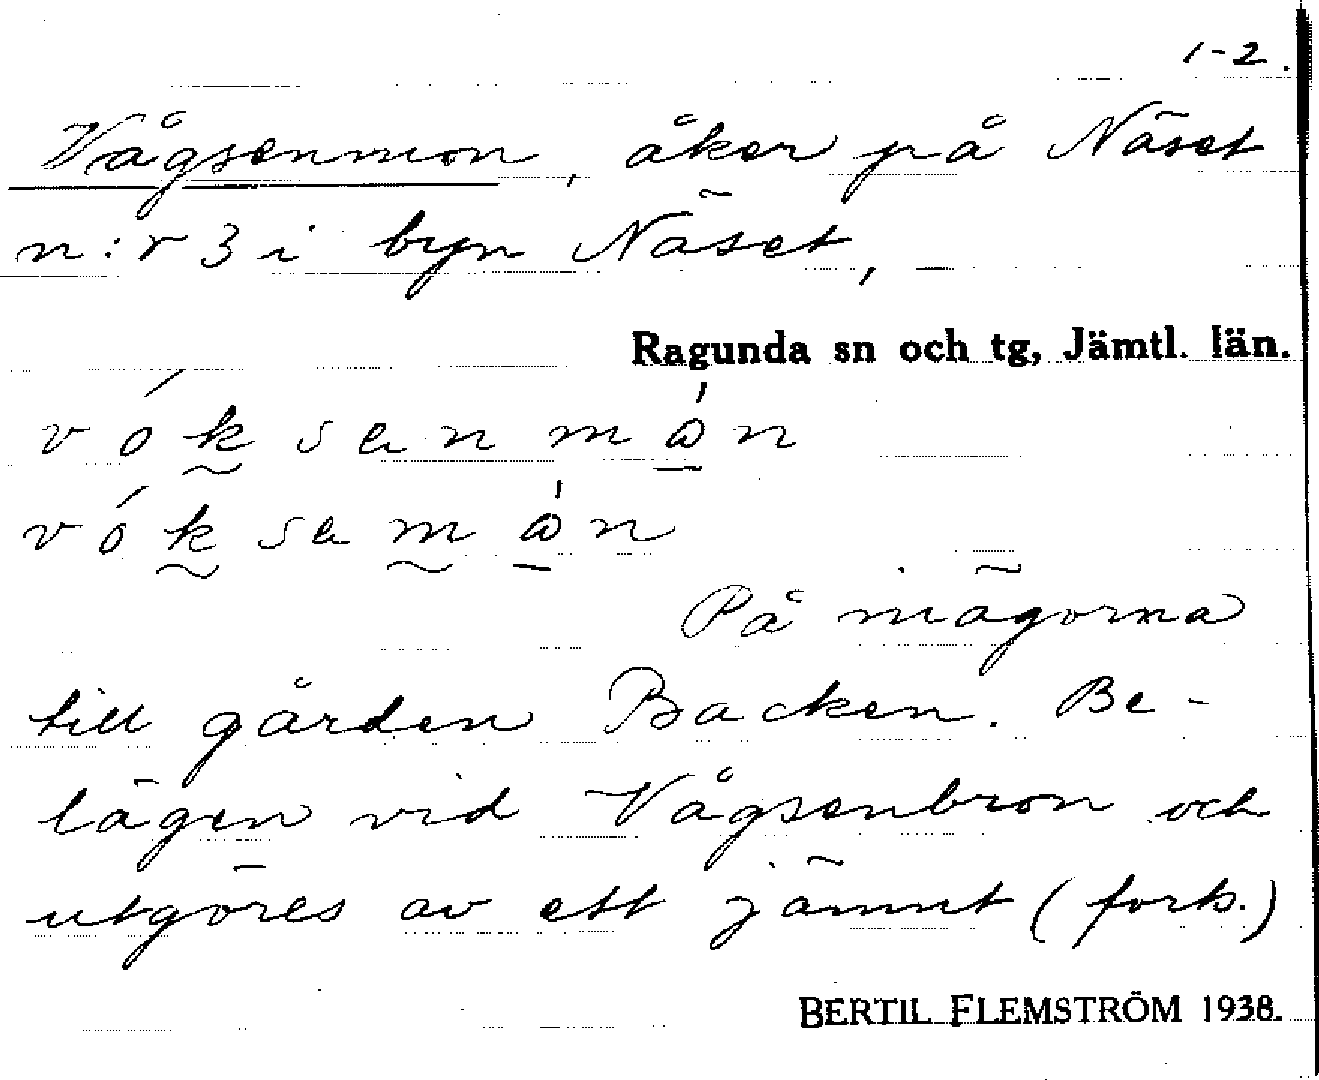 1-2.
Vågsenmon, åker på Näset
n:r 3 i byn Näset,
Ragunda sn och tg, Jämtl. län.
vóksenmón
vóksemón
På inägorna
till gården Backen. Be-
lägen vid Vågsenbron och
utgöres av ett jämnt (forts.)
BERTIL FLEMSTRÖM 1938.